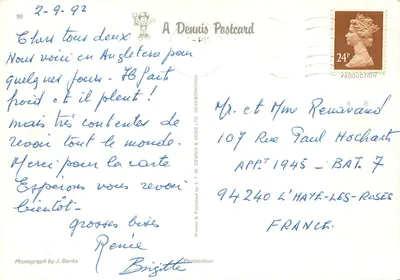 90
2-9-92
A Dennis Postcard
Chers tous deux
Nous voici en Angleterre pour
quelques jours. Il fait
froid et il pleut !
mais très contentes de
revoir tout le monde.
Merci pour la carte
Espérons vous revoir
bientôt.
grosses bises
Renée
Brigitte
Photograph by J. Banks
24P
Mr. et Mme Renavand
107 Rue Paul Hochart
APPT 1945 - BAT. 7
94240 L'HAYE-LES-ROSES
FRANCE.